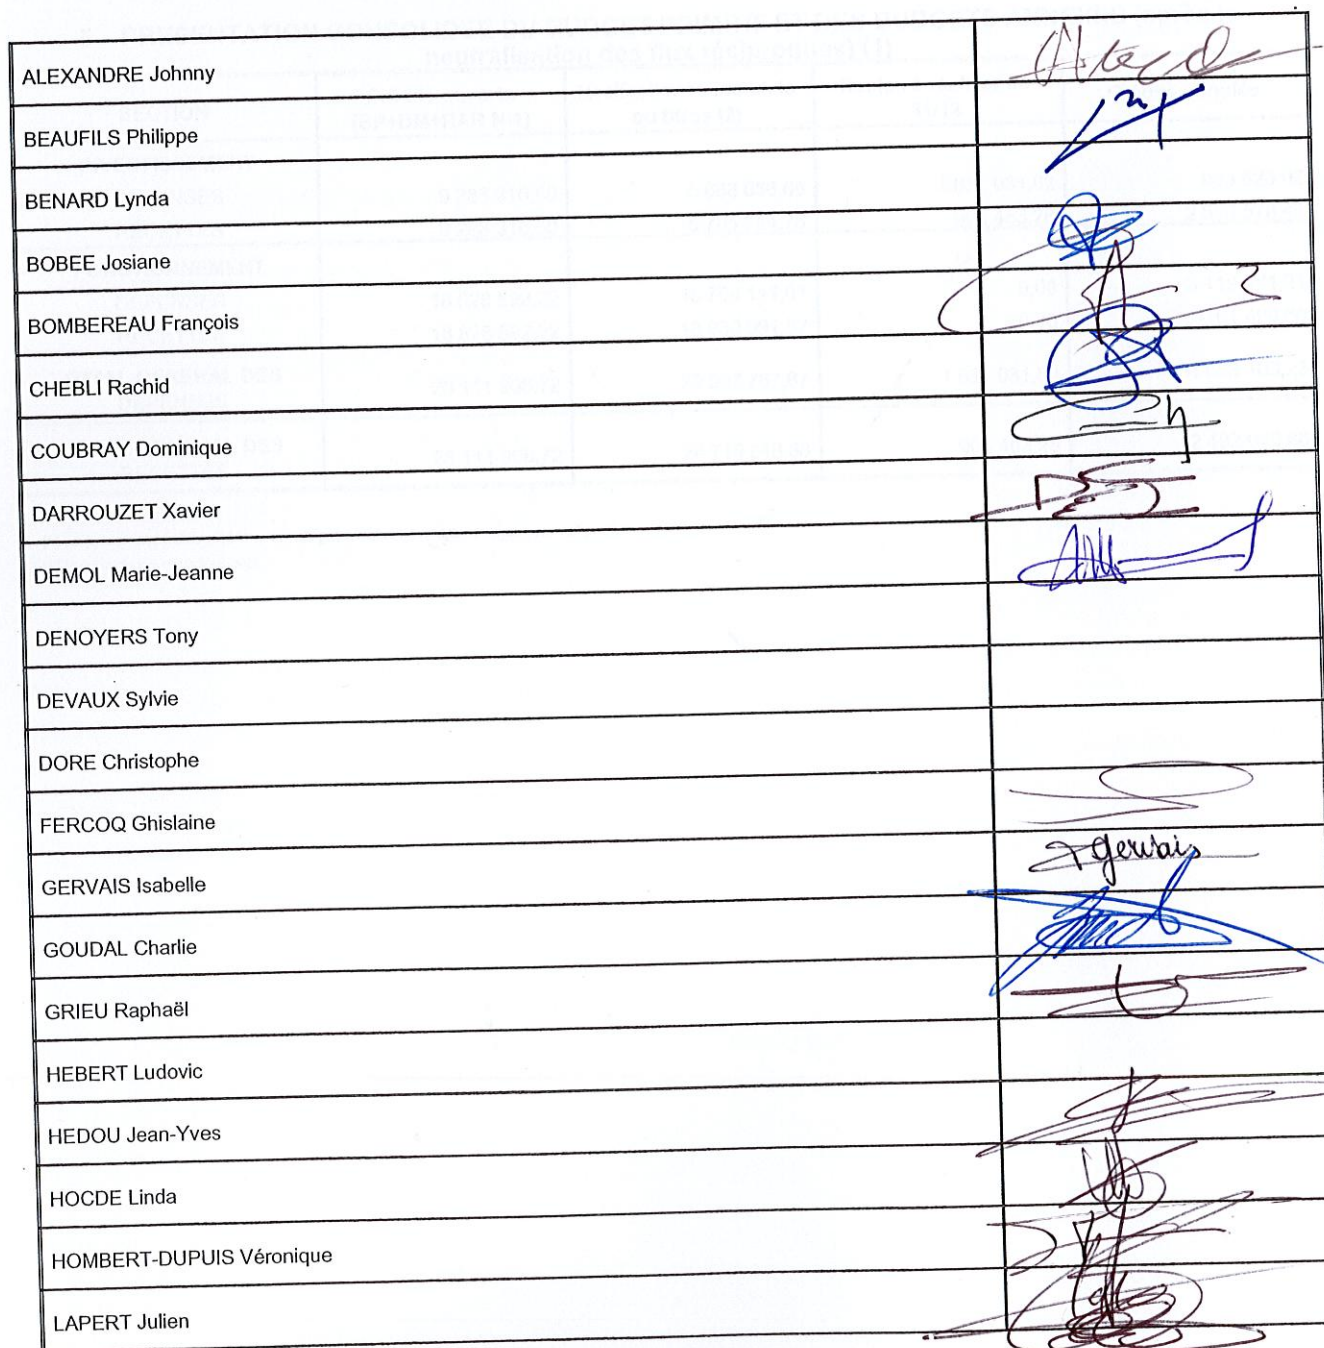 ALEXANDRE Johnny
BEAUFILS Philippe
BENARD Lynda
BOBEE Josiane
BOMBEREAU François
CHEBLI Rachid
COUBRAY Dominique
DARROUZET Xavier
DEMOL Marie-Jeanne
DENOYERS Tony
DEVAUX Sylvie
DORE Christophe
FERCOQ Ghislaine
GERVAIS Isabelle
Gervais
GOUDAL Charlie
GRIEU Raphaël
HEBERT Ludovic
HEDOU Jean-Yves
HOCDE Linda
HOMBERT-DUPUIS Véronique
LAPERT Julien